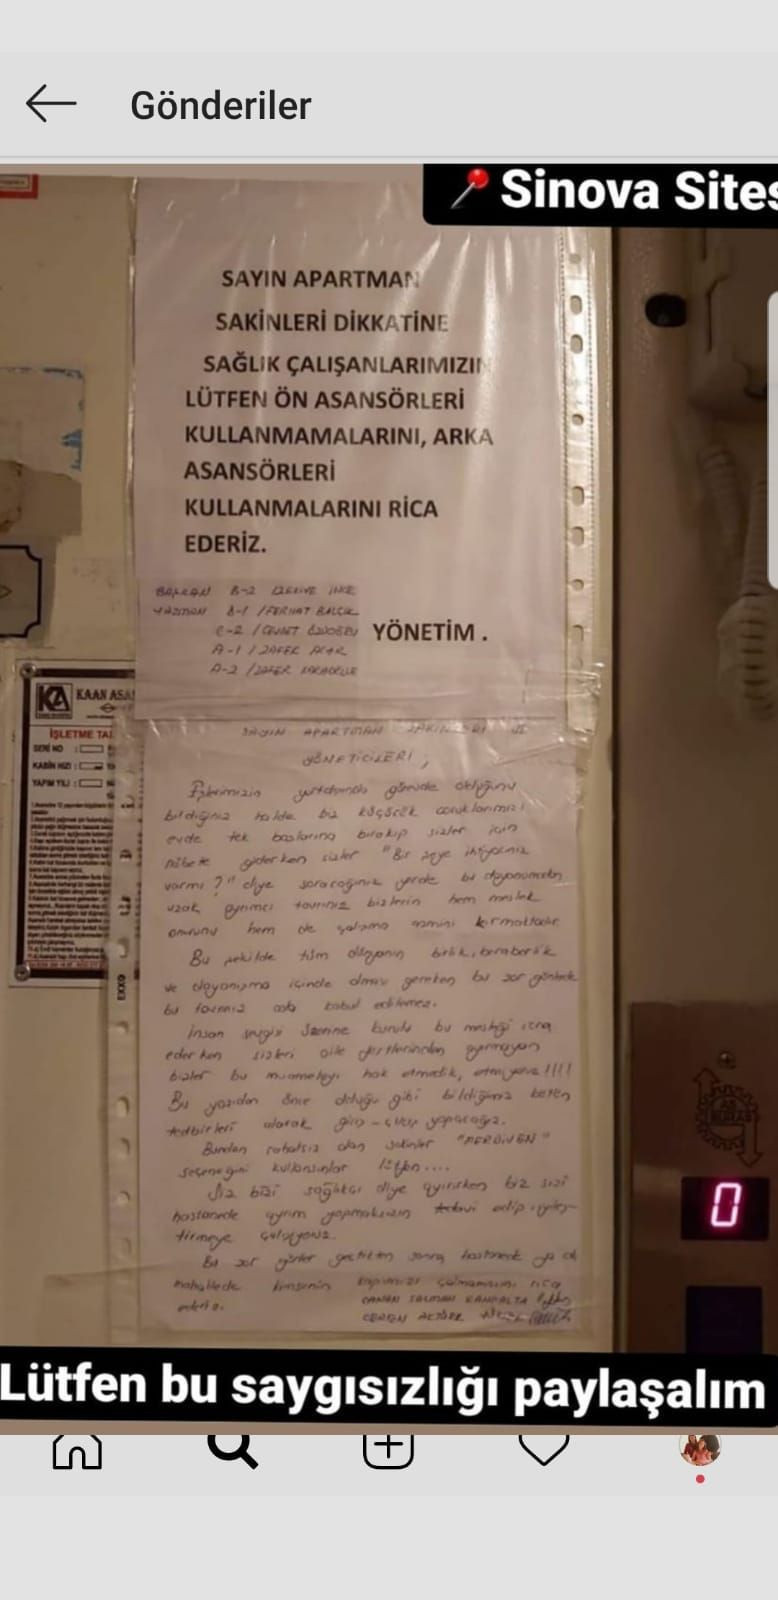 Gönderiler
Sinova Sites
SAYIN APARTMAN
SAKİNLERİ DİKKATİNE
SAĞLIK ÇALIŞANLARIMIZIN
LÜTFEN ÖN ASANSÖRLERİ
KULLANMAMALARINI, ARKA
ASANSÖRLERİ
KULLANMALARINI RİCA
EDERİZ.
BAŞKAN B-2
B-1 / FERHAT BALÇIK
C-2 / CEVDET
YÖNETİM .
A-1 / ZAFER
A-2 / ZAFER
KA KAAN ASA
İŞLETME TA
SERİ NO :
KABİN HIZI :
YAPIM YILI :
SAYIN APARTMAN SAKİNLERİ VE
YÖNETİCİLERİ ,
Eşlerimizin yurtdışında görevde olduğunu
bildiğiniz halde biz küçücük çocuklarımızı
evde tek başlarına bırakıp sizler için
nöbete giderken sizler "Bir şeye ihtiyacınız
varmı ?" diye soracağınız yerde bu dayanışmadan
uzak, ayrımcı tavrınız bizlerin hem meslek
onurunu hem de çalışma azmini kırmaktadır.
Bu şekilde tüm dünyanın birlik, beraberlik
ve dayanışma içinde olması gereken bu zor günlerde
bu tavrınız asla kabul edilemez.
İnsan sevgisi üzerine kurulu bu mesleği icra
ederken sizleri aile fertlerinden ayırmayan
bizler bu muameleyi hak etmedik, etmiyoruz !!!!
Bu yazıdan önce olduğu gibi bildiğimiz bütün
tedbirleri alarak giriş - çıkış yapacağız.
Bundan rahatsız olan sakinler "MERDİVEN"
seçeneğini kullansınlar lütfen ....
Siz bizi sağlıkçı diye ayırırken biz sizi
hastanede ayrım yapmaksızın tedavi edip iyileş-
tirmeye çalışıyoruz.
Bu zor günler geçtikten sonra hastanede ya da
mahallede kimsenin kapımızı çalmamasını rica
ederiz.
CANAN
CEREN
0
Lütfen bu saygısızlığı paylaşalım